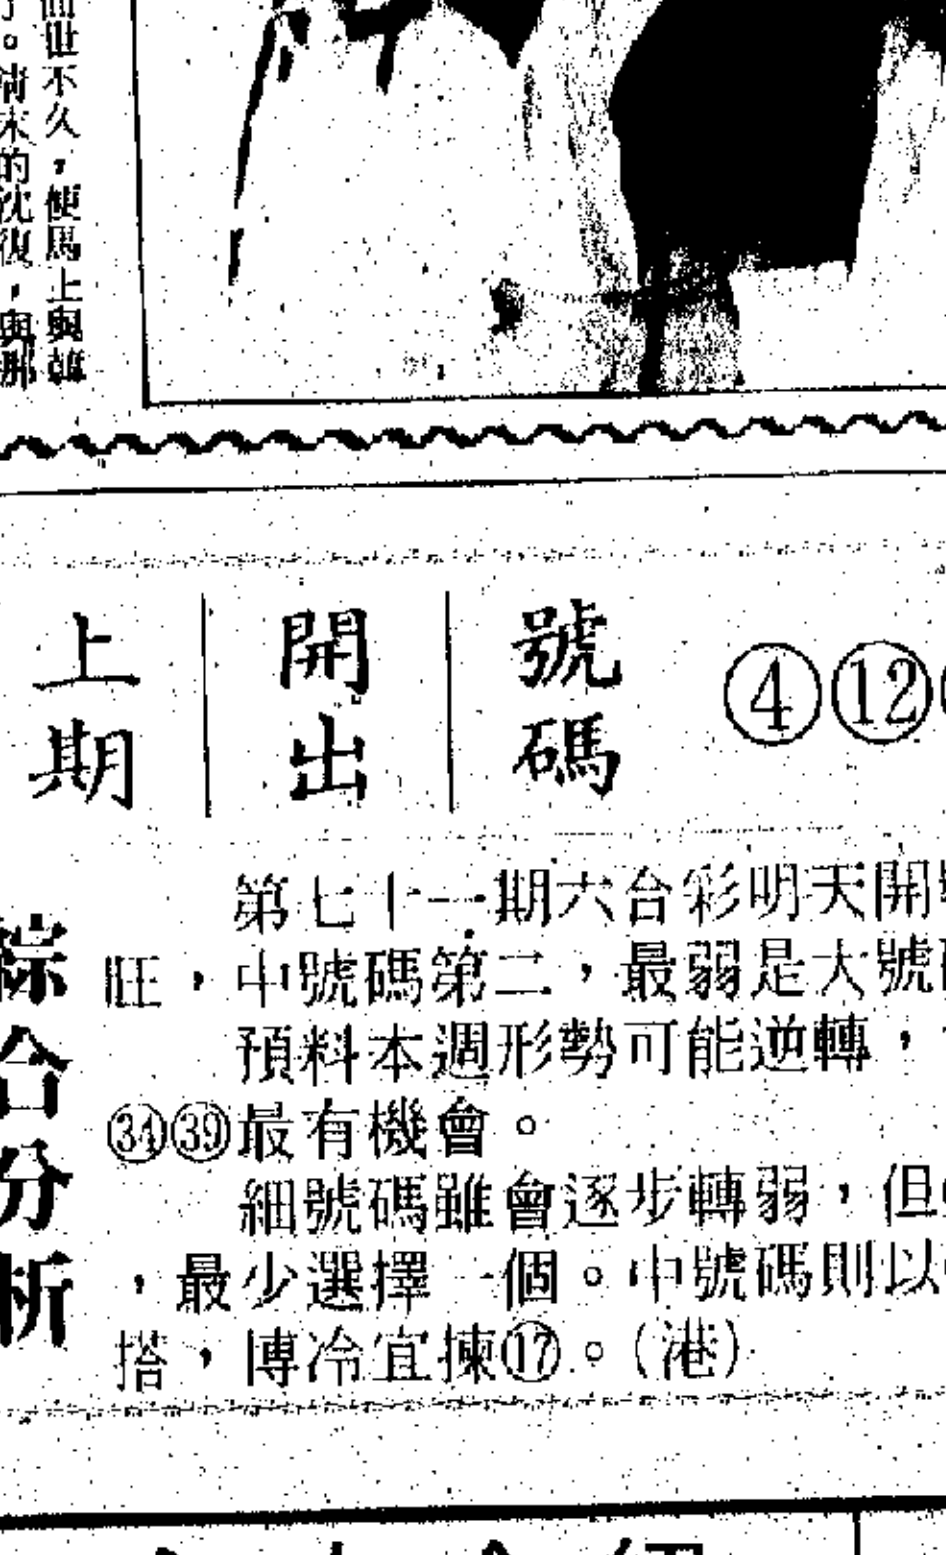 面世不久，便馬上與
。清末的沈復，與那
上期
開出
號碼
④⑫
綜合分析
第七十一期六合彩明天開
旺，中號碼第二，最弱是大號
預料本週形勢可能逆轉，
㉞㊴最有機會。
細號碼雖會逐步轉弱，但
，最少選擇一個。中號碼則以
搭，博冷宜揀⑰。（港）